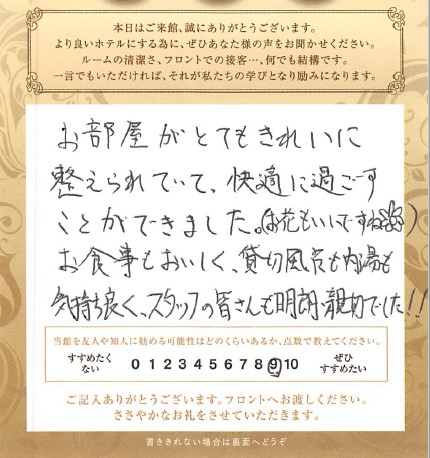 本日はご来館、誠にありがとうございます。
より良いホテルにする為に、ぜひあなた様の声をお聞かせください。
ルームの清潔さ、フロントでの接客…、何でも結構です。
一言でもいただければ、それが私たちの学びとなり励みになります。
お部屋がとてもきれいに
整えられていて、快適に過ごす
ことができました。(お花もいいですね)
お食事もおいしく、貸切風呂も内湯も
気持ち良く、スタッフの皆さんも明朗、親切でした!!
当館を友人や知人に勧める可能性はどのくらいあるか、点数で教えてください。
すすめたくない 0 1 2 3 4 5 6 7 8 9 10 ぜひすすめたい
ご記入ありがとうございます。フロントへお渡しください。
ささやかなお礼をさせていただきます。
書ききれない場合は裏面へどうぞ